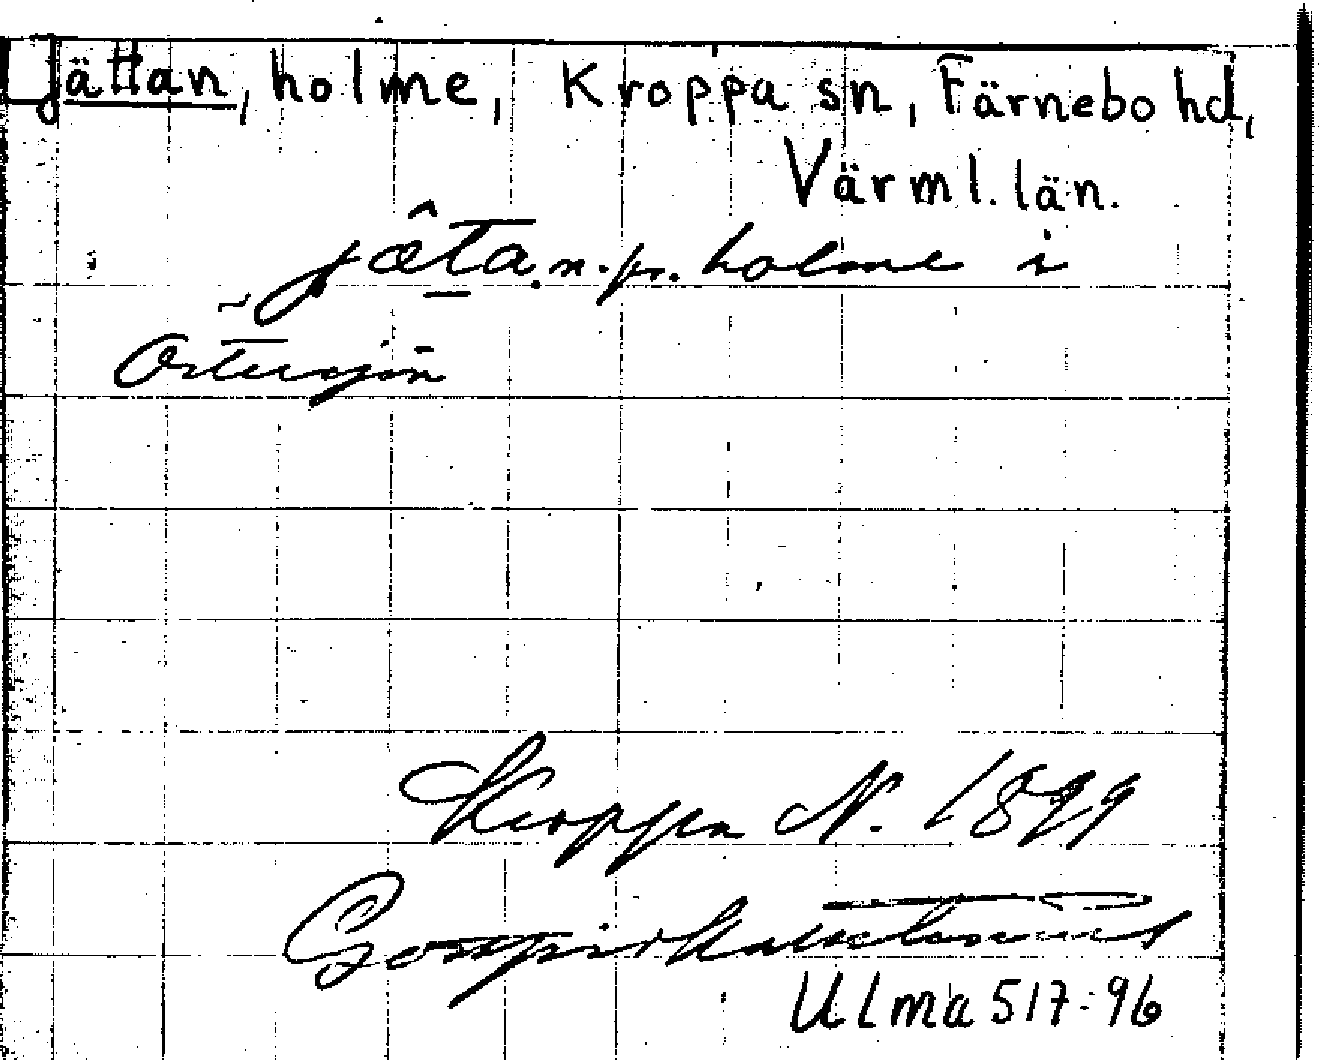 Jättan, holme, Kroppa sn, Färnebo hd,
Värml. län.
jæ̂ta n. pr. holme i
Östersjön
Kroppa N. 1899
Ulma 517:96